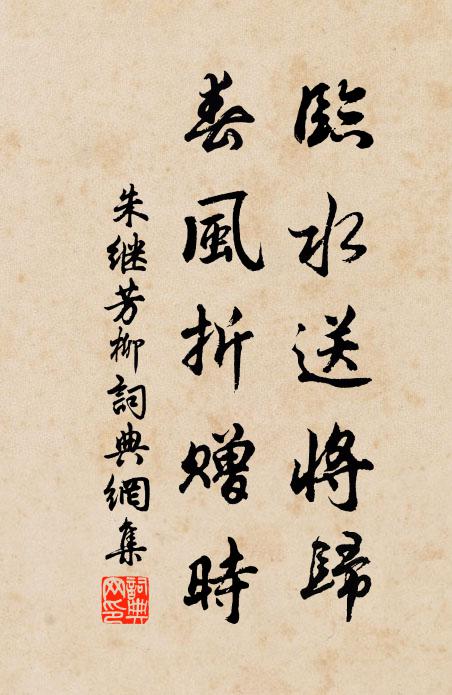 臨水送將歸
春風折贈時
朱继芳柳詞典網集
詞典網印